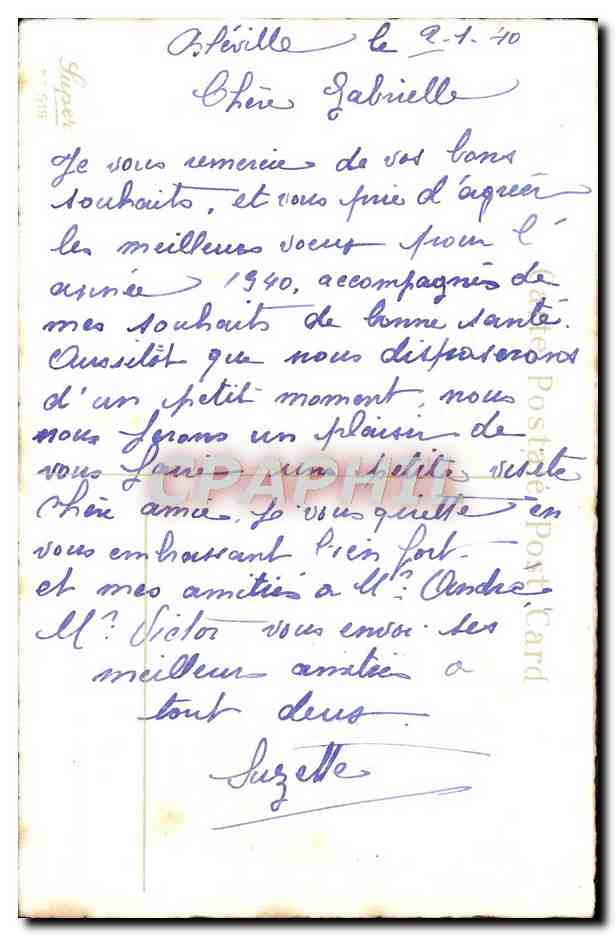 le 9-1-40
Chère Gabrielle
Je vous remercie de vos bons
souhaits, et vous prie d'agréer
les meilleurs voeux pour l'
année 1940, accompagnés de
mes souhaits de bonne santé.
Aussitôt que nous disposerons
d'un petit moment, nous
nous ferons un plaisir de
vous faire une petite visite
chère amie. Je vous quitte en
vous embrassant bien fort
et mes amitiés a Mr André
Mr Victor vous envoi ses
meilleurs amitiés a
tout deux.
Suzette
Super
Carte Postale Post Card
CPAPHIL